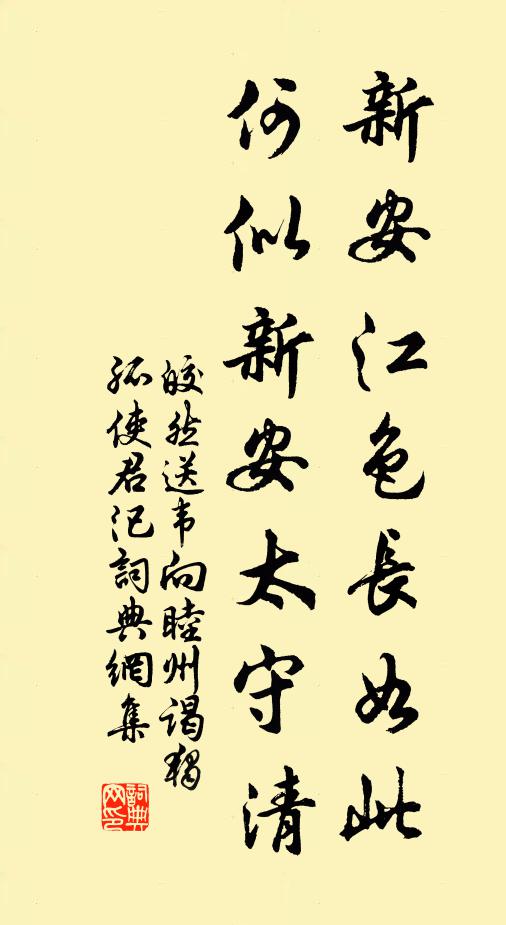 新安江色長如此
何似新安太守清
皎然送韦向睦州谒独
孤使君汜詞典網集
詞典
网印